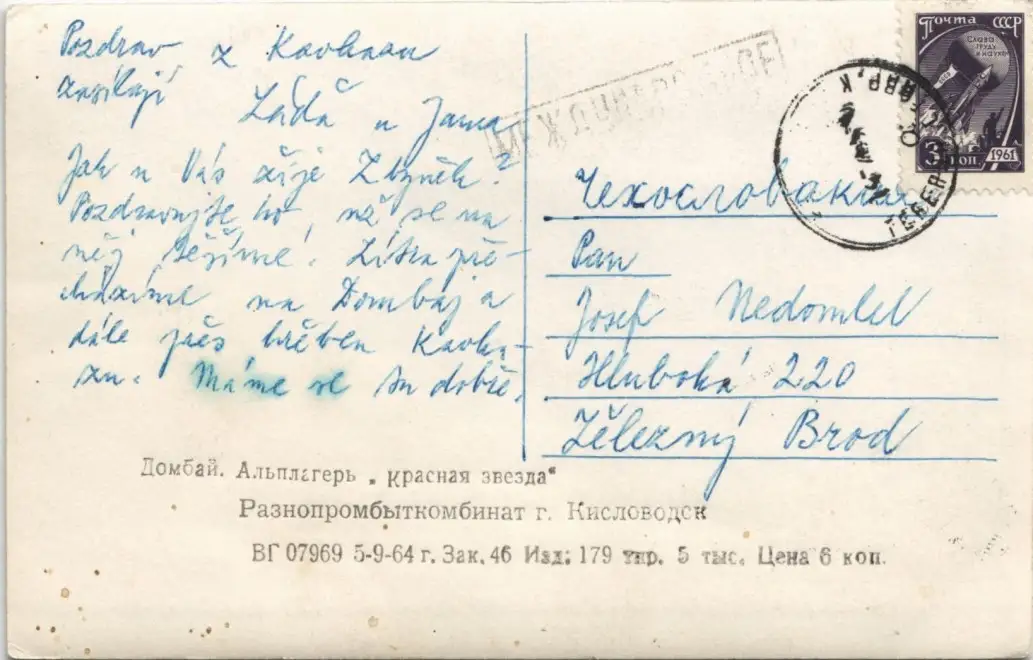 Pozdrav z Kavkazu
zasílají
Láďa a Jana
Jak u Vás žije Zbyněk?
Pozdravujte ho, už se na
něj těšíme! Zítra pře-
cházíme na Dombaj a
dále přes hřeben Kavka-
zu. Máme se tu dobře.
МЕЖДУНАРОДНОЕ
Почта СССР
Слава
труду
и науке
3 коп. 1961
ТЕБЕРДА
Чехословакия
Pan
Josef Nedomlel
Hluboká 220
Železný Brod
Домбай. Альплагерь „Красная звезда“
Разнопромбыткомбинат г. Кисловодск
ВГ 07969 5-9-64 г. Зак. 46 Изд: 179 тир. 5 тыс. Цена 6 коп.